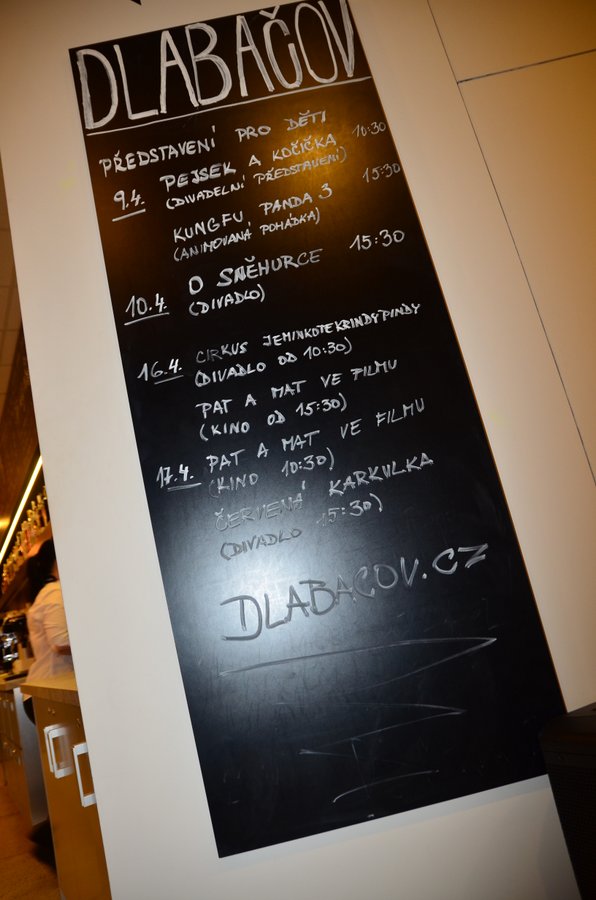 DLABAČOV
PŘEDSTAVENÍ PRO DĚTI
9.4. PEJSEK A KOČIČKA 10:30
(DIVADELNÍ PŘEDSTAVENÍ)
KUNGFU PANDA 3 15:30
(ANIMOVANÁ POHÁDKA)
10.4. O SNĚHURCE 15:30
(DIVADLO)
16.4. CIRKUS JEMINKOTEKRINDYPINDY
(DIVADLO OD 10:30)
PAT A MAT VE FILMU
(KINO OD 15:30)
17.4. PAT A MAT VE FILMU
(KINO 10:30)
ČERVENÁ KARKULKA
(DIVADLO 15:30)
DLABACOV.CZ